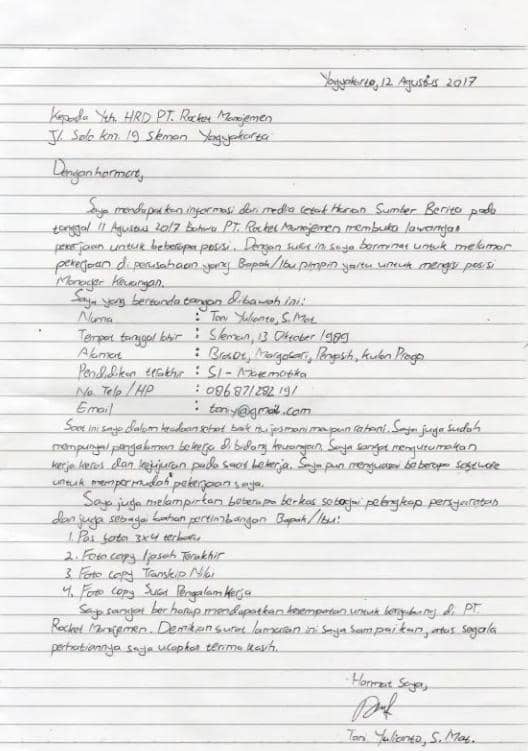 Yogyakarta, 12 Agustus 2017
Kepada Yth. HRD PT. Rocket Manajemen
Jl. Solo km. 19 Sleman Yogyakarta
Dengan hormat,
Saya mendapatkan informasi dari media cetak Harian Sumber Berita pada
tanggal 11 Agustus 2017 bahwa PT. Rocket Manajemen membuka lawangan
pekerjaan untuk beberapa posisi. Dengan surat ini saya berminat untuk melamar
pekerjaan di perusahaan yang Bapak/Ibu pimpin yaitu untuk mengisi posisi
Manager Keuangan.
Saya yang bertanda tangan dibawah ini:
Nama : Toni Yulianto, S. Mat.
Tempat tanggal lahir : Sleman, 13 Oktober 1989
Alamat : Brosot, Margosari, Pengasih, Kulon Progo
Pendidikan terakhir : S1 - Matematika
No. Telp / HP : 086871282191
Email : toni.y@gmail.com
Saat ini saya dalam keadaan sehat baik itu jasmani maupun rohani. Saya juga sudah
mempunyai pengalaman bekerja di bidang keuangan. Saya sangat mengutamakan
kerja keras dan kejujuran pada saat bekerja. Saya pun menguasai beberapa software
untuk mempermudah pekerjaan saya.
Saya juga melampirkan beberapa berkas sebagai pelengkap persyaratan
dan juga sebagai bahan pertimbangan Bapak/Ibu:
1. Pas foto 3x4 terbaru
2. Foto copy Ijasah Terakhir
3. Foto copy Transkip Nilai
4. Foto copy Surat Pengalam Kerja
Saya sangat berharap mendapatkan kesempatan untuk bergabung di PT
Rocket Manajemen. Demikian surat lamaran ini saya sampaikan, atas segala
perhatiannya saya ucapkan terima kasih.
Hormat Saya,
Toni Yulianto, S. Mat.